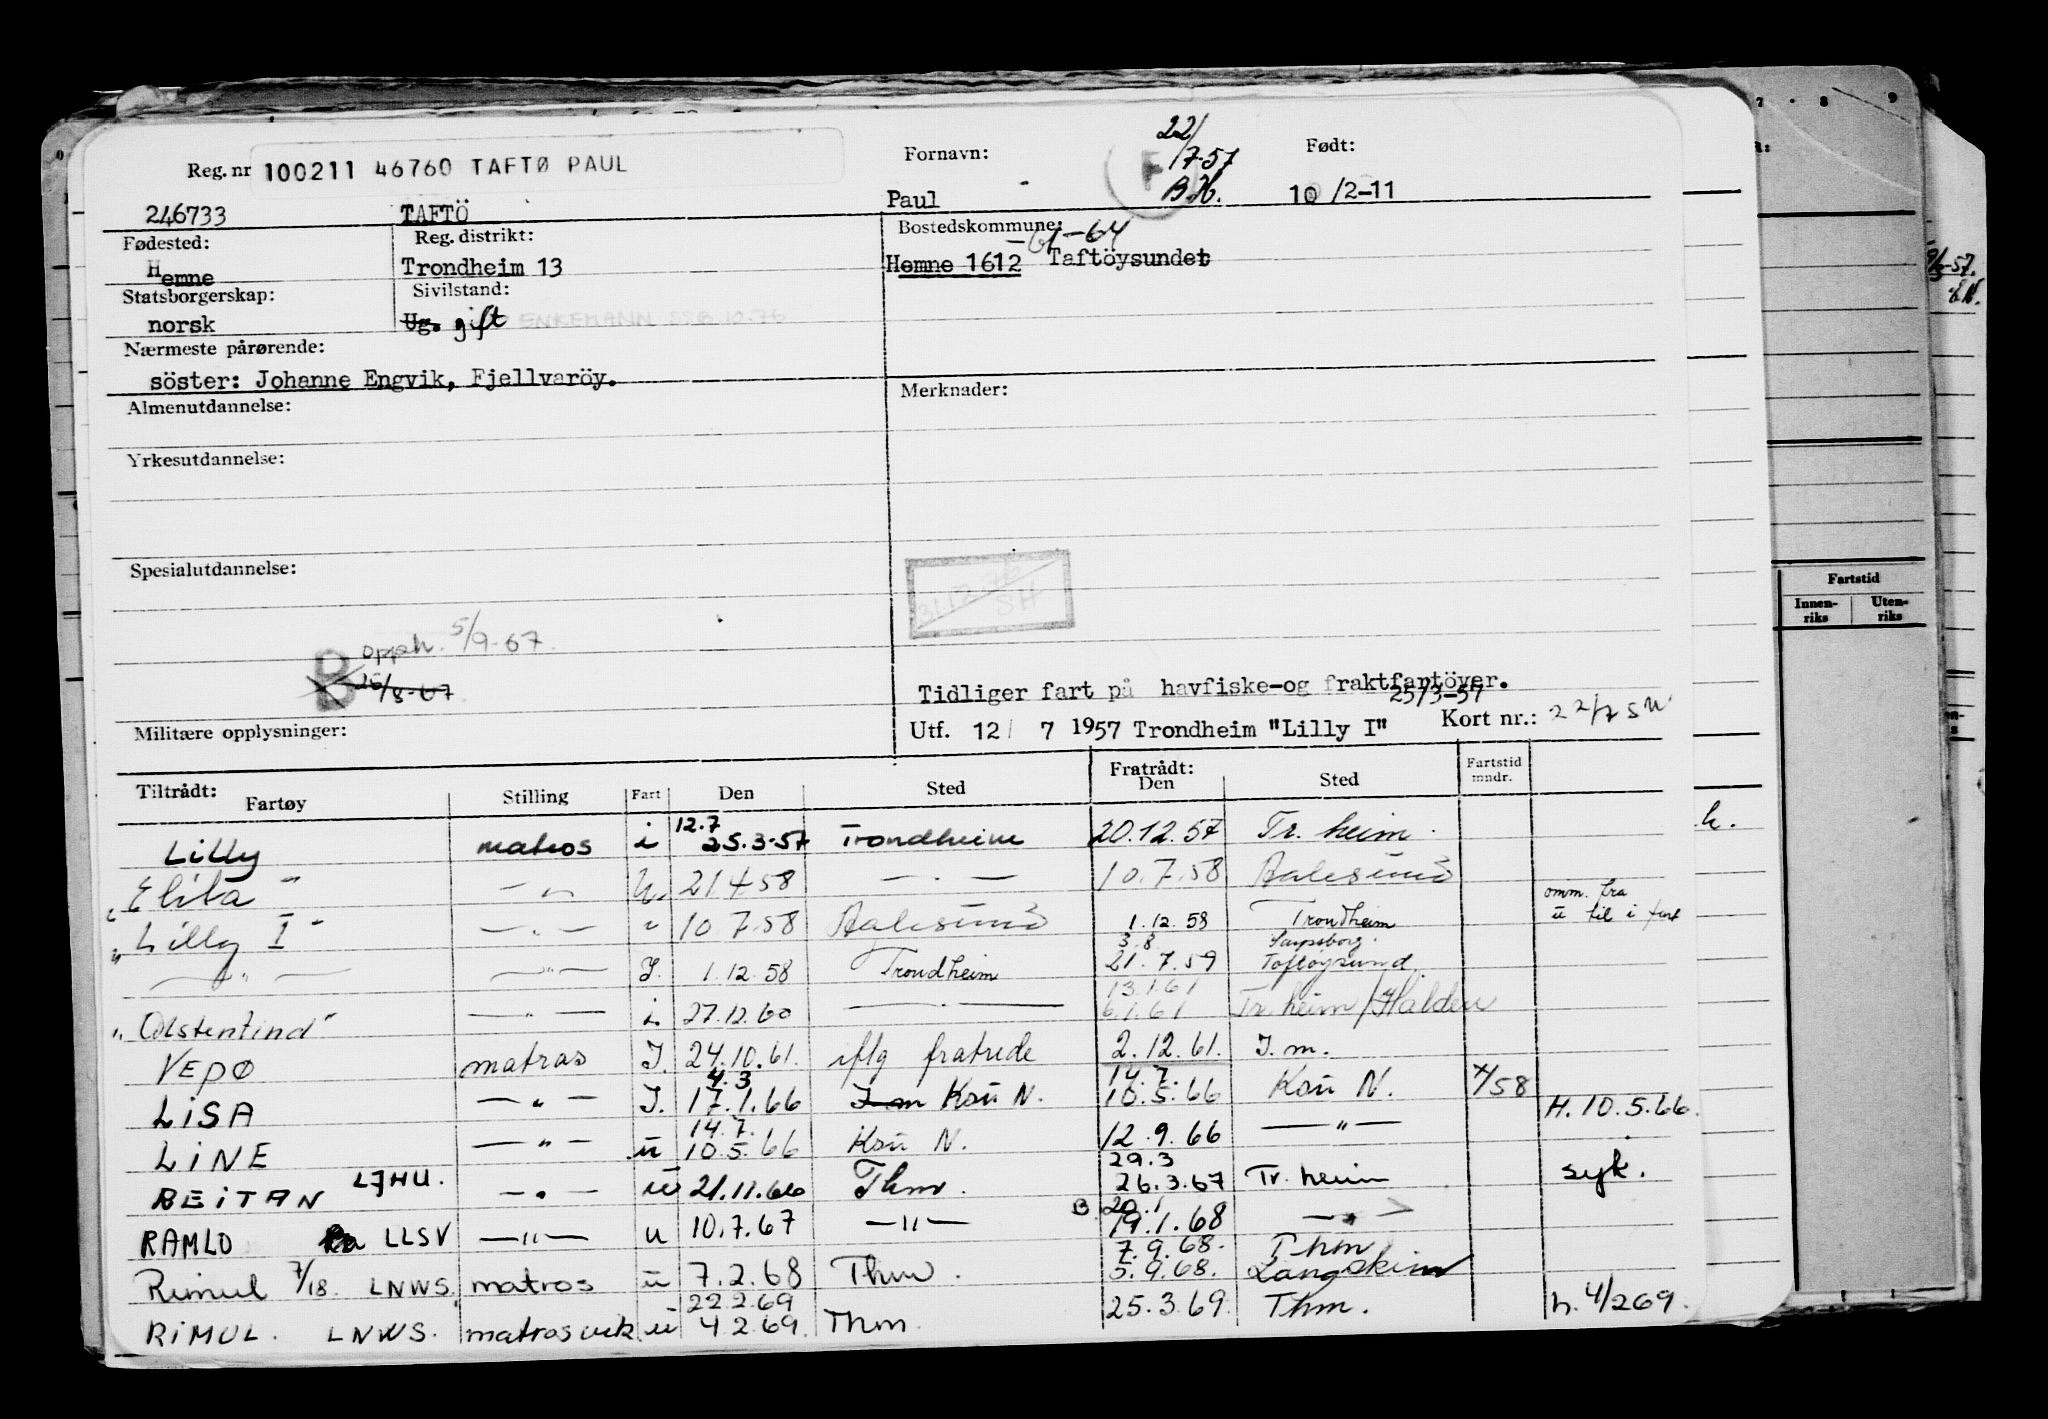 Reg. nr 100211 46760 TAFTØ PAUL
Fornavn: 22/7-57 B.H. Født:
246733 TAFTÖ Paul 10/2-11
Fødested: Reg. distrikt: Bostedskommune:
61-64
Hemne Trondheim 13 Hemne 1612 Taftöysundet
Statsborgerskap: Sivilstand:
norsk Ug. gift ENKEMANN SSB.10.76
Nærmeste pårørende:
söster: Johanne Engvik, Fjellvaröy.
Almenutdannelse: Merknader:
Yrkesutdannelse:
Spesialutdannelse:
SH
Opph. 5/9-67.
B 26/8-67
Tidliger fart på havfiske-og fraktfartöyer.
25/3-57
Militære opplysninger: Utf. 12/ 7 1957 Trondheim "Lilly I" Kort nr.: 22/7 SW
Tiltrådt: Fartøy Stilling Fart Den Sted Fratrådt: Den Sted Fartstid mndr.
12.7
Lilly matros i 25.3-57 Trondheim 20.12.57 Tr. heim
"Elita" — " — U. 21.4.58 — . — 10.7.58 Aalesund
omm. fra
"Lilly I" — " — " 10.7.58 Aalesund 1.12.58 Trondheim ü til i fart
3.8 Sarpsborg.
— " — — " — I. 1.12.58 Trondheim 21.7.59 Taftöysund
13.1.61
"Olstentind" — " — i. 27.12.60 — 6.1.61 Tr. heim/Halden
VEDØ matros I. 24.10.61. iflg fratrede 2.12.61. I.m.
4.3 14.7.
LiSA — " — I. 17.1.66 I.m Krsü N. 10.5.66 Krsü N. x/58 H. 10.5.66.
14.7.
LiNE — " — ü 10.5.66 Krsü N. 12.9.66 — " —
29.3
BEiTAN LJHU. — " — ü 21.11.66 Thm. 26.3.67 Tr. heim syk.
20.1
RAMLO LLSV — " — u 10.7.67 — " — B 19.1.68 — " —
7.9.68. Thm
Rimul 7/18. LNWS. matros ü 7.2.68 Thm. 5.9.68. Langskim
22.2.69
RiMUL. LNWS. matros vik ü 4.2.69. Thm. 25.3.69. Thm. h. 4/269.
7 . 8 9
Fartstid
Innen-riks Uten-riks
h.